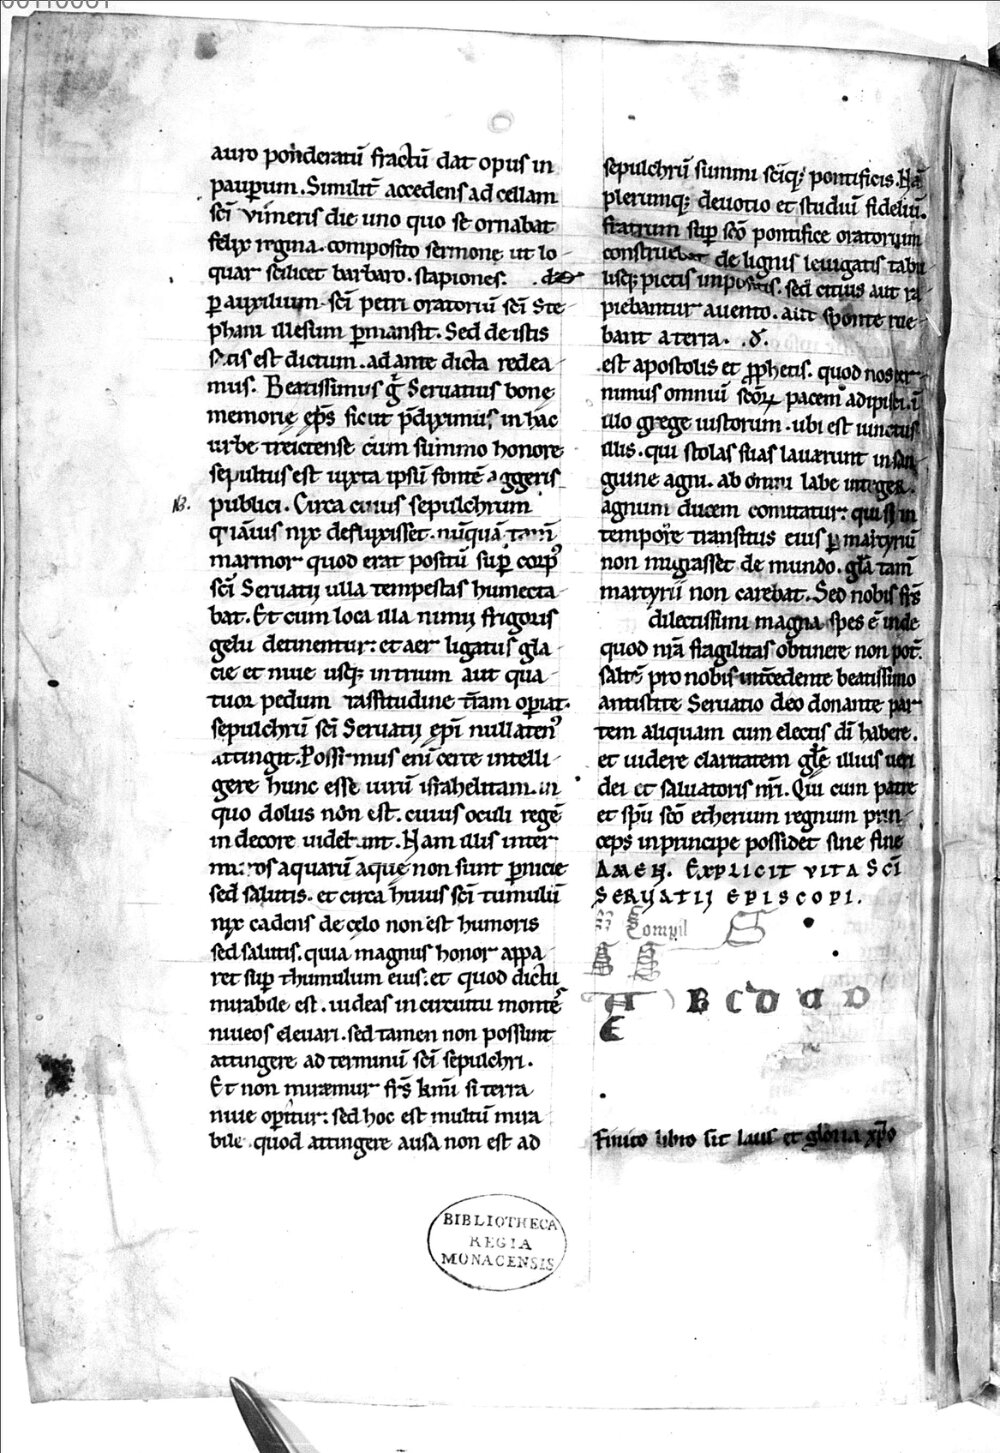 auro ponderatū fractū dat opus in
paupum. Similit̄ accedens ad cellam
sc̄i vimeris die uno quo se ornabat
felix regina. composito sermone ut lo
quar scilicet barbaro. stapiones.
p auxilium sc̄i petri oratoriū sc̄i Ste
phani illesum pmansit. Sed de istis
satis est dictum. ad ante dicta redea
mus. Beatissimus g̊ Seruatius bonę
memorię ep̄s sicut p̄diximus, in hac
urbe treictense cum summo honore
sepultus est iuxta ipsū fontē aggeris
publici. Circa cuius sepulchrum
quāuis nix defluxisset. nūquā tam̄
marmor quod erat positū sup corp9
sc̄i Seruatii ulla tempestas humecta
bat. Et cum loca illa nimii frigoris
gelu detinentur: et aer ligatus gla
cie et niue usq; in trium aut qua
tuor pedum crassitudine t̄ram opiat.
sepulchrū sc̄i Seruatii ep̄i nullaten9
attingit. Possumus eni certe intelli
gere hunc esse uirū israhelitam. in
quo dolus non est. cuius oculi regē
in decore uideb̄unt. Nam illis inter
muros aquarū aque non sunt pnicie
sed salutis. et circa huius sc̄i tumulū
nix cadens de celo non est humoris
sed salutis. quia magnus honor appa
ret sup thumulum eius: et quod dictu
mirabile est. uideas in circuitu montes
niueos eleuari. sed tamen non possunt
attingere ad terminū sc̄i sepulchri.
Et non miræmur fr̄s km̄i si terra
niue opitur: sed hoc est multū mira
bile quod attingere ausa non est ad
sepulchrū summi sc̄iq; pontificis. Nā
plerumq; deuotio et studiū fideliū
fratrum sup sc̄o pontifice oratorium
construebat de lignis leuigatis tabu
lisq; pictis impositis. sed citius aut ra
piebantur a uento. aut sponte rue
bant a terra.
est apostolis et pphetis. quod noster
minus omniū sc̄oꝝ pacem adipisci. ī
illo grege iustorum. ubi est iunctus
illis. qui stolas suas lauærunt in san
guine agni. ab omni labe integer.
agnum ducem comitatur: qui si in
tempore transitus eius p martyriū
non migasset de mundo. gl̄a tam̄
martyrii non carebat. Sed nobis fr̄s
dilectissimi magna spes ē inde
quod nr̄a fragilitas obtinere non pot̄.
saltē pro nobis intcedente beatissimo
antistite Seruatio deo donante par
tem aliquam cum electis dī habere.
et uidere claritatem gl̄e illius ueri
dei et saluatoris nr̄i. Qui cum patre
et sp̄u sc̄o etherium regnum prin
ceps in principe possidet sine fine
AMEN. EXPLICIT VITA SC̄I
SERVATII EPISCOPI.
Compil S
A B C D d D
E
Finito libro sit laus et gloria xp̄o
BIBLIOTHECA
REGIA
MONACENSIS